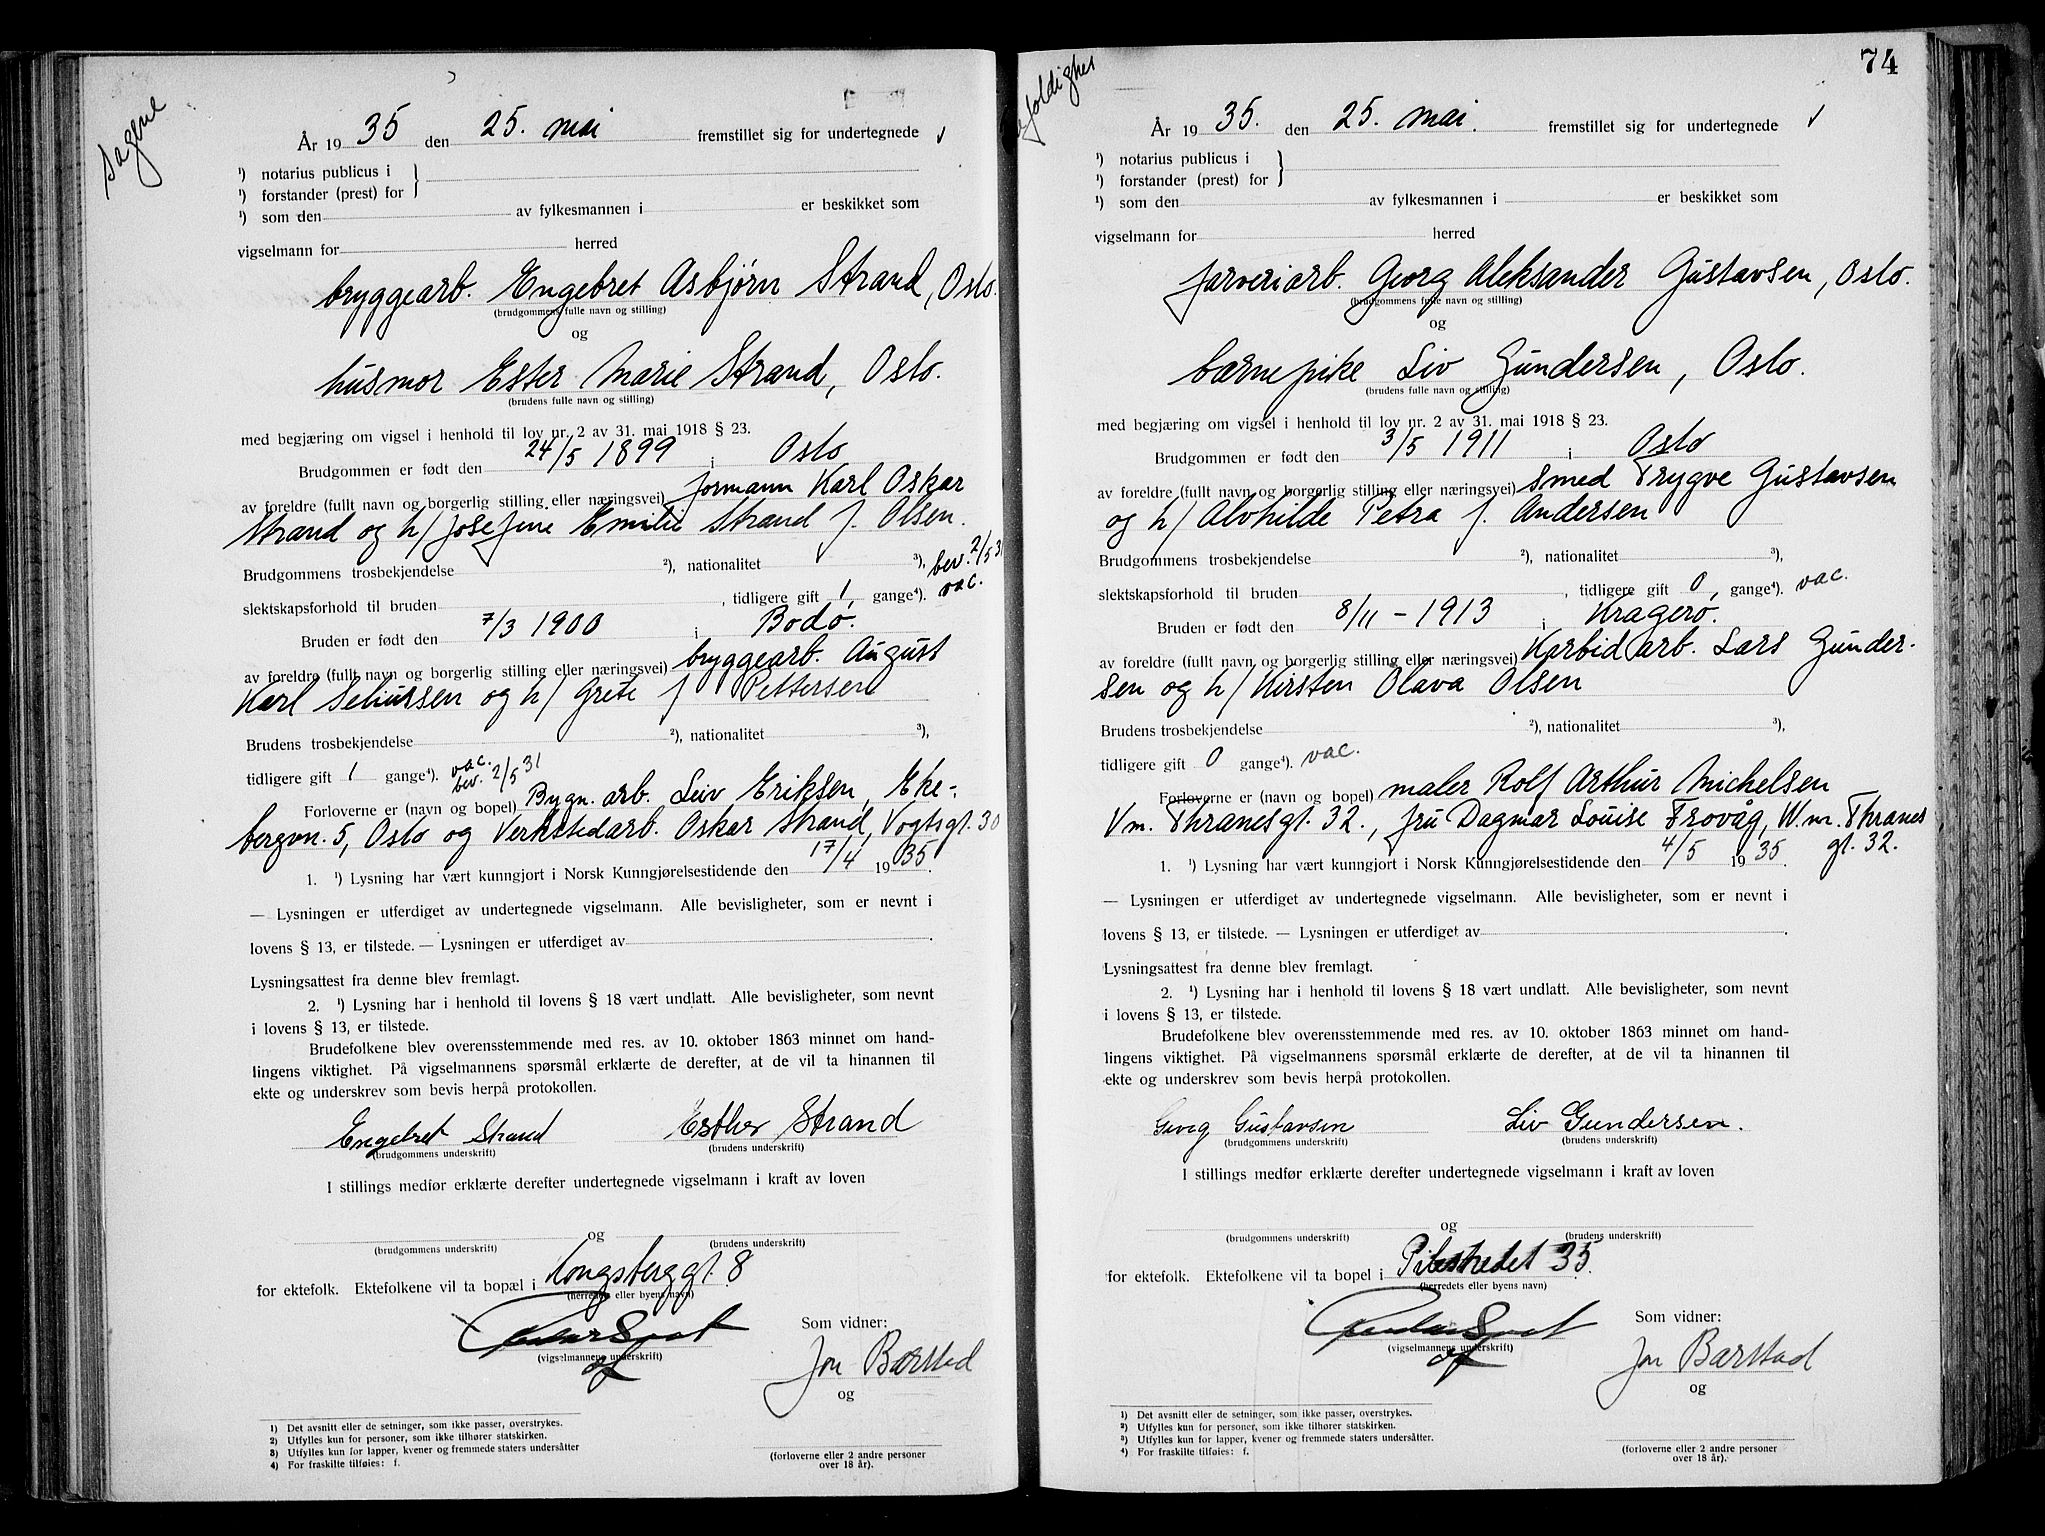 Sagene
År 19 35 den 25. mai fremstillet sig for undertegnede
¹) notarius publicus i
¹) forstander (prest) for
¹) som den av fylkesmannen i er beskikket som
vigselmann for herred
bryggearb. Engebret Asbjørn Strand, Oslo.
(brudgommens fulle navn og stilling)
og
husmor Ester Marie Strand, Oslo.
(brudens fulle navn og stilling)
med begjæring om vigsel i henhold til lov nr. 2 av 31. mai 1918 § 23.
Brudgommen er født den 24/5 1899 i Oslo
av foreldre (fullt navn og borgerlig stilling eller næringsvei) formann Karl Oskar
Strand og h/ Josefine Emilie Strand f. Olsen.
Brudgommens trosbekjendelse ²), nationalitet ³), bev. 2/5 31
slektskapsforhold til bruden , tidligere gift 1, gange⁴). vac.
Bruden er født den 7/3 1900 i Bodø.
av foreldre (fullt navn og borgerlig stilling eller næringsvei) bryggearb. August
Karl og h/ Grete f Pettersen
Brudens trosbekjendelse ²), nationalitet ³),
tidligere gift 1 gange⁴). vac. bev. 2/5 31
Forloverne er (navn og bopel) Bygn. arb. Leiv Eriksen, Eke-
bergvn. 5, Oslo og Verkstedarb. Oskar Strand, Vogtsgt. 30
1. ¹) Lysning har vært kunngjort i Norsk Kunngjørelsestidende den 17/4 19 35.
— Lysningen er utferdiget av undertegnede vigselmann. Alle bevisligheter, som er nevnt i
lovens § 13, er tilstede. — Lysningen er utferdiget av .
Lysningsattest fra denne blev fremlagt.
2. ¹) Lysning har i henhold til lovens § 18 vært undlatt. Alle bevisligheter, som nevnt
i lovens § 13, er tilstede.
Brudefolkene blev overensstemmende med res. av 10. oktober 1863 minnet om hand-
lingens viktighet. På vigselmannens spørsmål erklærte de derefter, at de vil ta hinannen til
ekte og underskrev som bevis herpå protokollen.
Engebret Strand Esther Strand
(brudgommens underskrift) (brudens underskrift)
I stillings medfør erklærte derefter undertegnede vigselmann i kraft av loven
og
(brudgommens underskrift) (brudens underskrift)
for ektefolk. Ektefolkene vil ta bopæl i Kongsberggt. 8
(herredets eller byens navn)
Som vidner:
(vigselmannens underskrift)
Jon Barstad
og
¹) Det avsnitt eller de setninger, som ikke passer, overstrykes.
²) Utfylles kun for personer, som ikke tilhører statskirken.
³) Utfylles kun for lapper, kvener og fremmede staters undersåtter
⁴) For fraskilte tilføies: f.
(forloverne eller 2 andre personer
over 18 år).
74
År 19 35. den 25. mai. fremstillet sig for undertegnede
¹) notarius publicus i
¹) forstander (prest) for
¹) som den av fylkesmannen i er beskikket som
vigselmann for herred
farveriarb. Georg Aleksander Gustavsen, Oslo.
(brudgommens fulle navn og stilling)
og
barnepike Liv Gundersen, Oslo.
(brudens fulle navn og stilling)
med begjæring om vigsel i henhold til lov nr. 2 av 31. mai 1918 § 23.
Brudgommen er født den 3/5 1911 i Oslo
av foreldre (fullt navn og borgerlig stilling eller næringsvei) smed Trygve Gustavsen
og h/ Alvhilde Petra f. Andersen
Brudgommens trosbekjendelse ²), nationalitet ³),
slektskapsforhold til bruden , tidligere gift 0, gange⁴). vac.
Bruden er født den 8/11 - 1913 i Kragerø.
av foreldre (fullt navn og borgerlig stilling eller næringsvei) Karbidarb. Lars Gunder-
sen og h/ Kirsten Olava Olsen
Brudens trosbekjendelse ²), nationalitet ³),
tidligere gift 0 gange⁴). vac.
Forloverne er (navn og bopel) maler Rolf Arthur Michelsen
Vm. Thranesgt. 32., fru Dagmar Louise Trovåg, W.m. Thranes
gt. 32.
1. ¹) Lysning har vært kunngjort i Norsk Kunngjørelsestidende den 4/5 19 35.
— Lysningen er utferdiget av undertegnede vigselmann. Alle bevisligheter, som er nevnt i
lovens § 13, er tilstede. — Lysningen er utferdiget av .
Lysningsattest fra denne blev fremlagt.
2. ¹) Lysning har i henhold til lovens § 18 vært undlatt. Alle bevisligheter, som nevnt
i lovens § 13, er tilstede.
Brudefolkene blev overensstemmende med res. av 10. oktober 1863 minnet om hand-
lingens viktighet. På vigselmannens spørsmål erklærte de derefter, at de vil ta hinannen til
ekte og underskrev som bevis herpå protokollen.
Georg Gustavsen Liv Gundersen.
(brudgommens underskrift) (brudens underskrift)
I stillings medfør erklærte derefter undertegnede vigselmann i kraft av loven
og
(brudgommens underskrift) (brudens underskrift)
for ektefolk. Ektefolkene vil ta bopel i Pilestredet 35.
(herredets eller byens navn)
Som vidner:
(vigselmannens underskrift)
Jon Barstad
og
¹) Det avsnitt eller de setninger, som ikke passer, overstrykes.
²) Utfylles kun for personer, som ikke tilhører statskirken.
³) Utfylles kun for lapper, kvener og fremmede staters undersåtter.
⁴) For fraskilte tilføies: f.
(forloverne eller 2 andre personer
over 18 år).